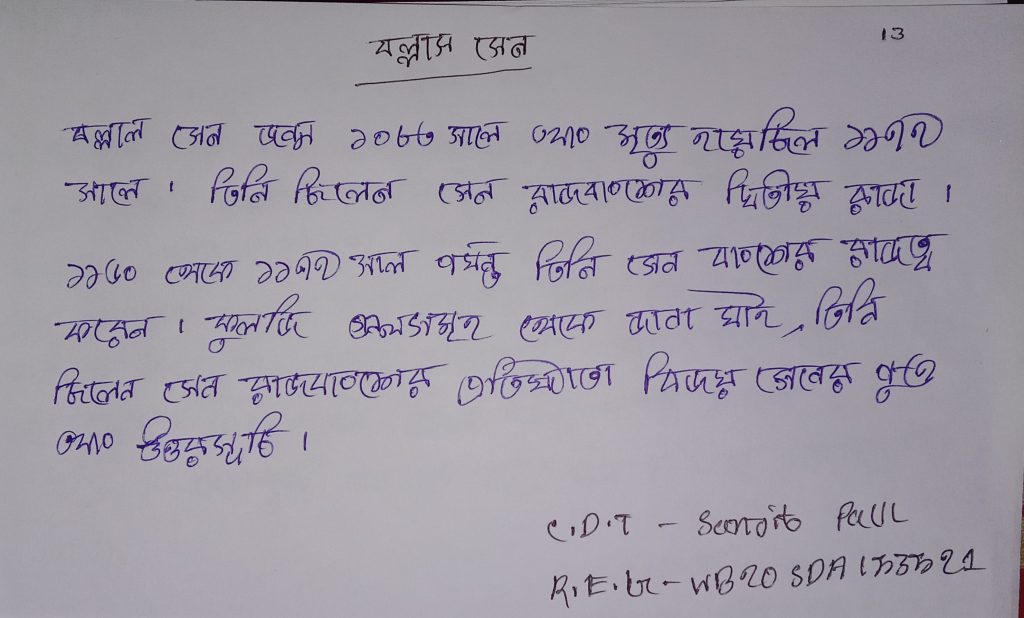 13
বল্লাল সেন
বল্লাল সেন জন্ম ১০৮৩ সালে এবং মৃত্যু হয়েছিল ১১৭৯
সালে। তিনি ছিলেন সেন রাজবংশের দ্বিতীয় রাজা।
১১৬০ থেকে ১১৭৯ সাল পর্যন্ত তিনি সেন বংশের রাজত্ব
করেন। কুলজি গ্রন্থসমূহ থেকে জানা যায়, তিনি
ছিলেন সেন রাজবংশের প্রতিষ্ঠাতা বিজয় সেনের পুত্র
এবং উত্তরসূরি।
C.D.T - Paul
R.E.G - WB20SDA